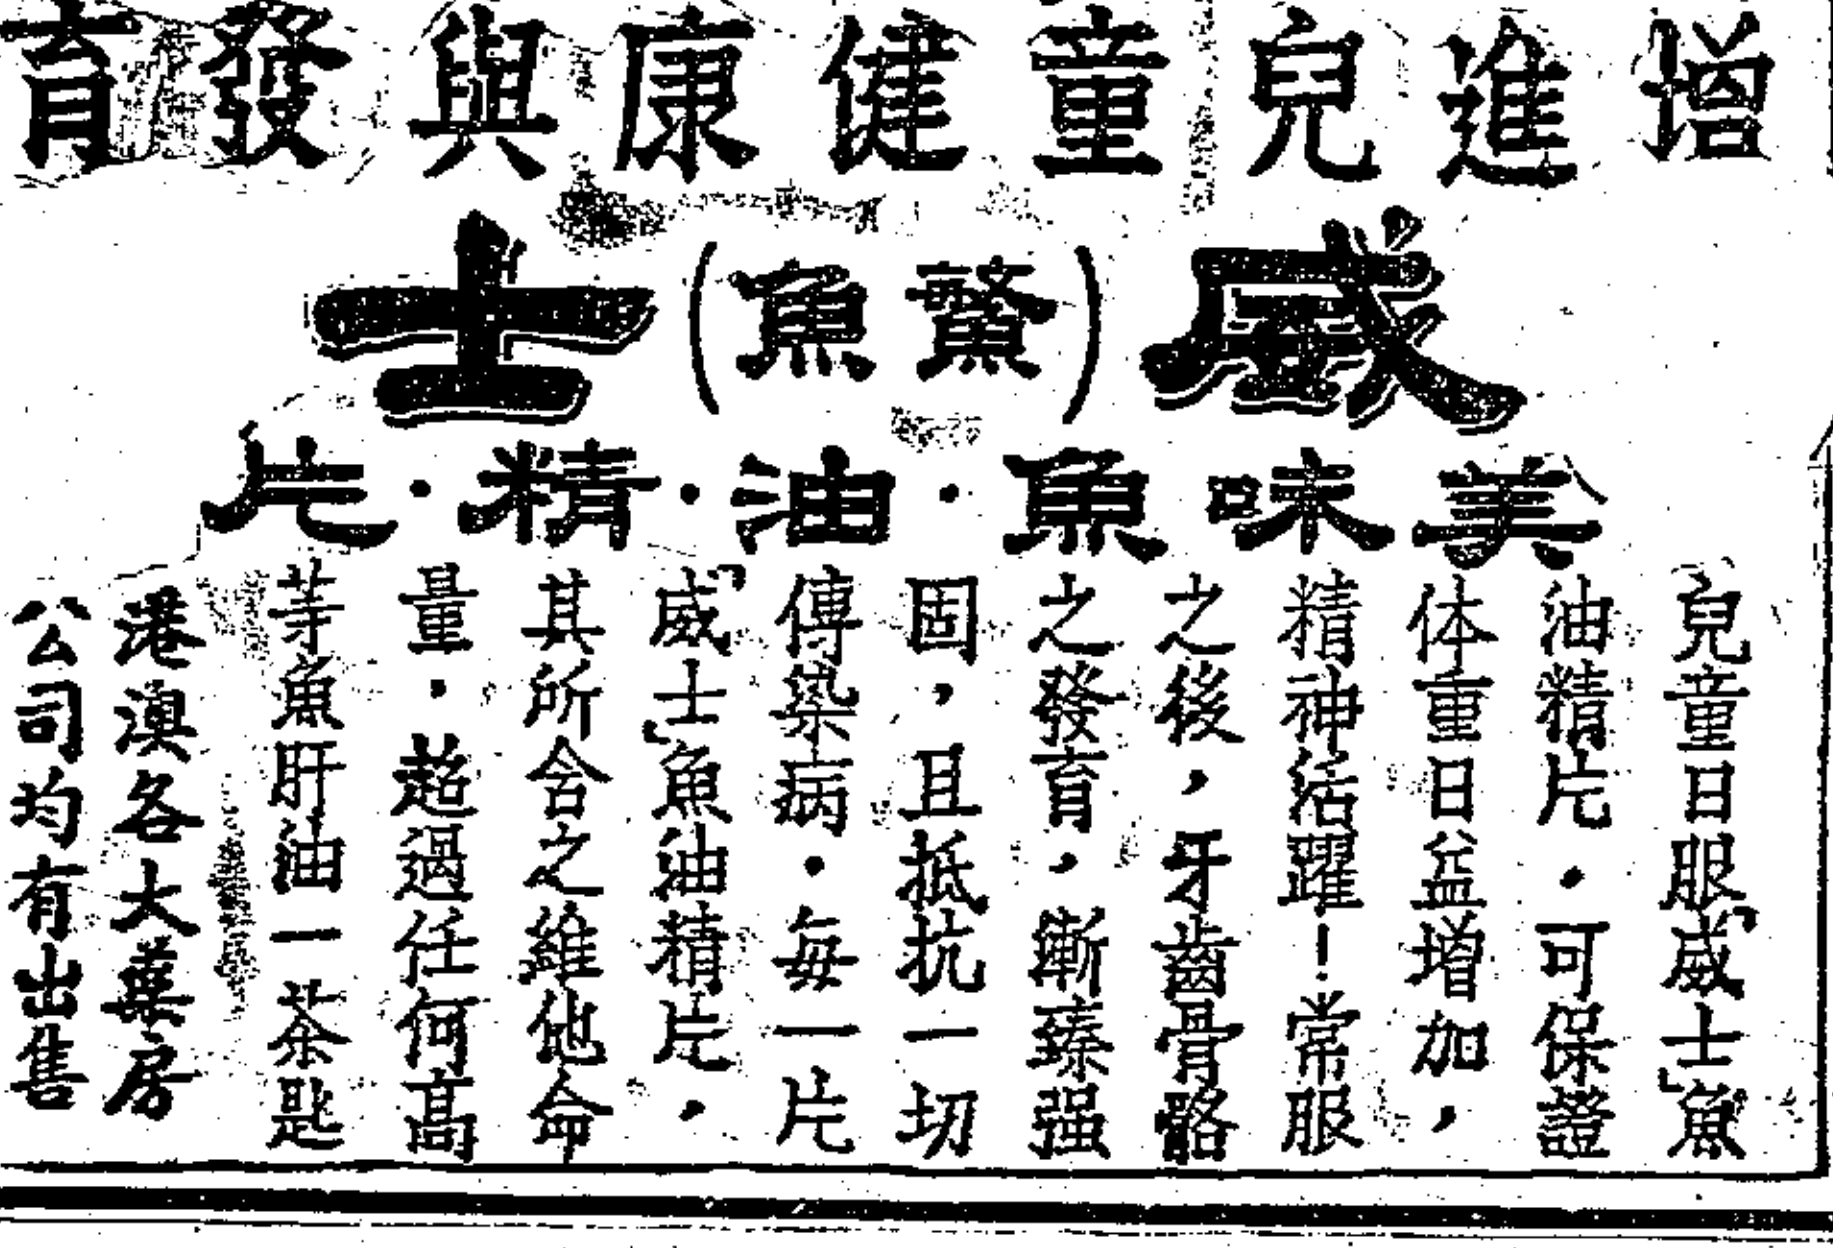 增進兒童健康與發育
威(鰵魚)士
美味魚·油·精·片
兒童日服「威士」魚
油精片。可保證
体重日益增加，
精神活躍！常服
之後，牙齒骨骼
之發育，漸臻强
固，且抵抗一切
傳染病。每一片
「威士」魚油精片，
其所含之維他命
量。超過任何高
等魚肝油一茶匙
港澳各大藥房
公司均有出售